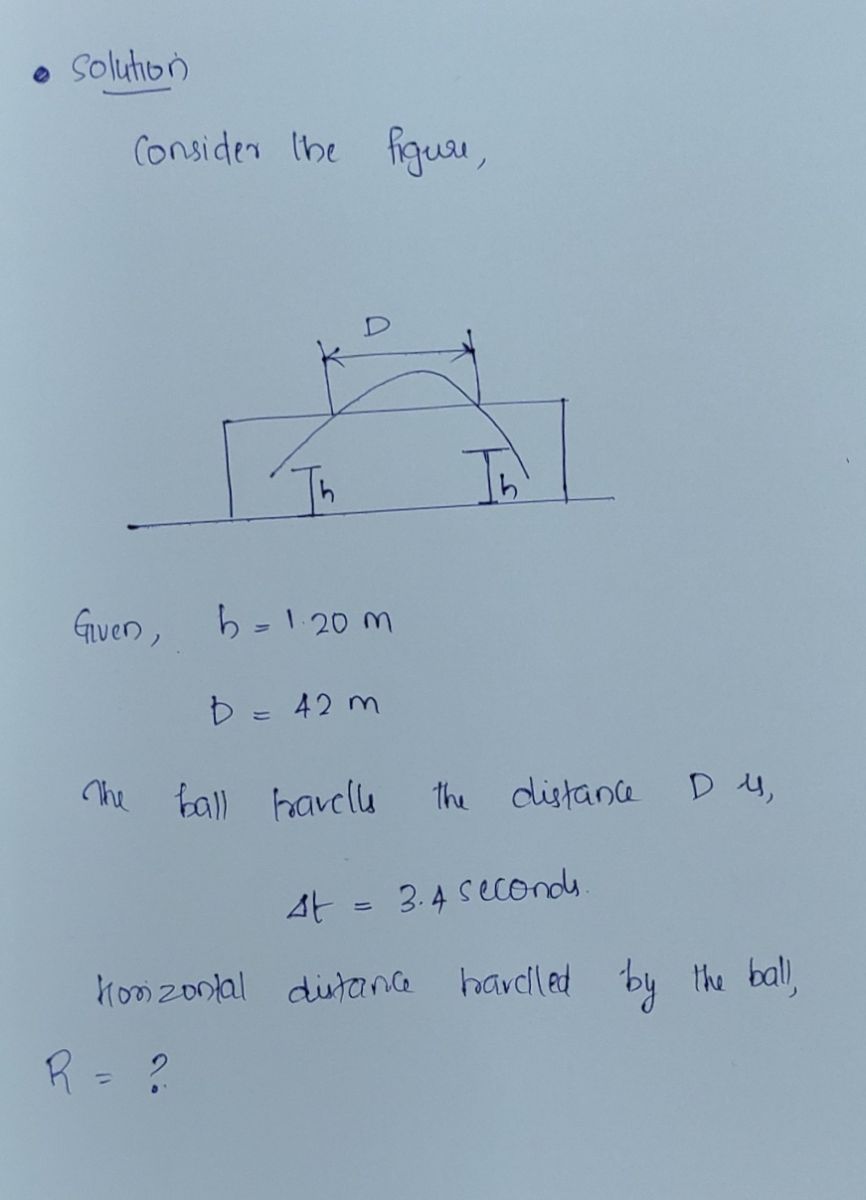 • Solution
Consider the figure,
D
h h
Given, h = 1.20 m
D = 42 m
The ball travells the distance D is,
Δt = 3.4 seconds.
Horizontal distance travelled by the ball,
R = ?